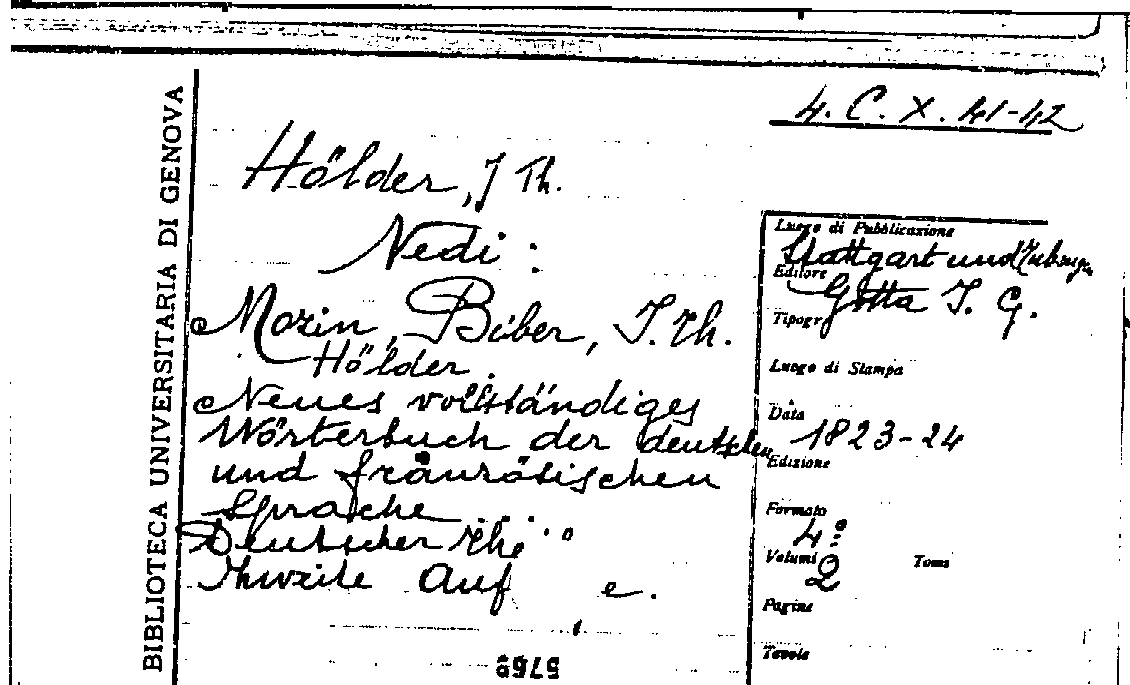 4. C. X. 41-42
BIBLIOTECA UNIVERSITARIA DI GENOVA
Hölder, J Th.
Vedi :
Mozin, Biber, J. Th.
Hölder.
Neues vollständiges
Wörterbuch der deutschen
und französischen
Sprache
Deutscher
Zweite Auf e.
5769
Luogo di Pubblicazione
Stuttgart und
Editore
Cotta J. G.
Tipogr
Luogo di Stampa
Data
1823-24
Edizione
Formato
4°
Volumi 2 Tomi
Pagine
Tavole